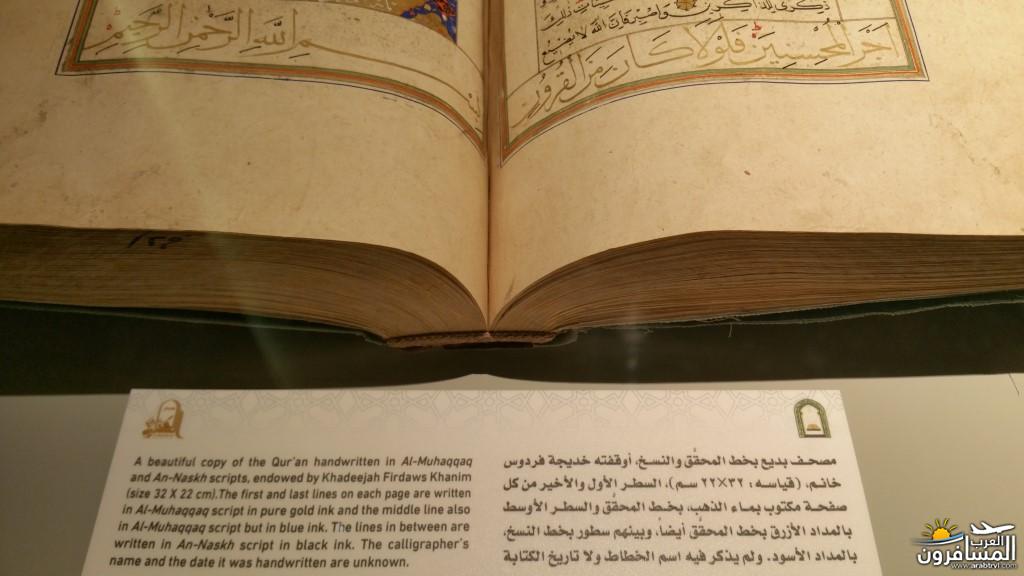 ذكرى للذاكرين واصبر فان الله لا يضيع
اجر المحسنين فلولا كان من القرون
بسم الله الرحمن الرحيم
A beautiful copy of the Qur'an handwritten in Al-Muhaqqaq
and An-Naskh scripts, endowed by Khadeejah Firdaws Khanim
(size 32 X 22 cm).The first and last lines on each page are written
in Al-Muhaqqaq script in pure gold ink and the middle line also
in Al-Muhaqqaq script but in blue ink. The lines in between are
written in An-Naskh script in black ink. The calligrapher's
name and the date it was handwritten are unknown.
مصحف بديع بخط المحقَّق والنسخ، أوقفته خديجة فردوس
خانم، (قياسه: ٣٢×٢٢ سم)، السطر الأول والأخير من كل
صفحة مكتوب بماء الذهب، بخط المحقَّق والسطر الأوسط
بالمداد الأزرق بخط المحقَّق أيضاً، وبينهم سطور بخط النسخ،
بالمداد الأسود. ولم يذكر فيه اسم الخطاط ولا تاريخ الكتابة
العرب
المسافرون
www.arabtrvl.com